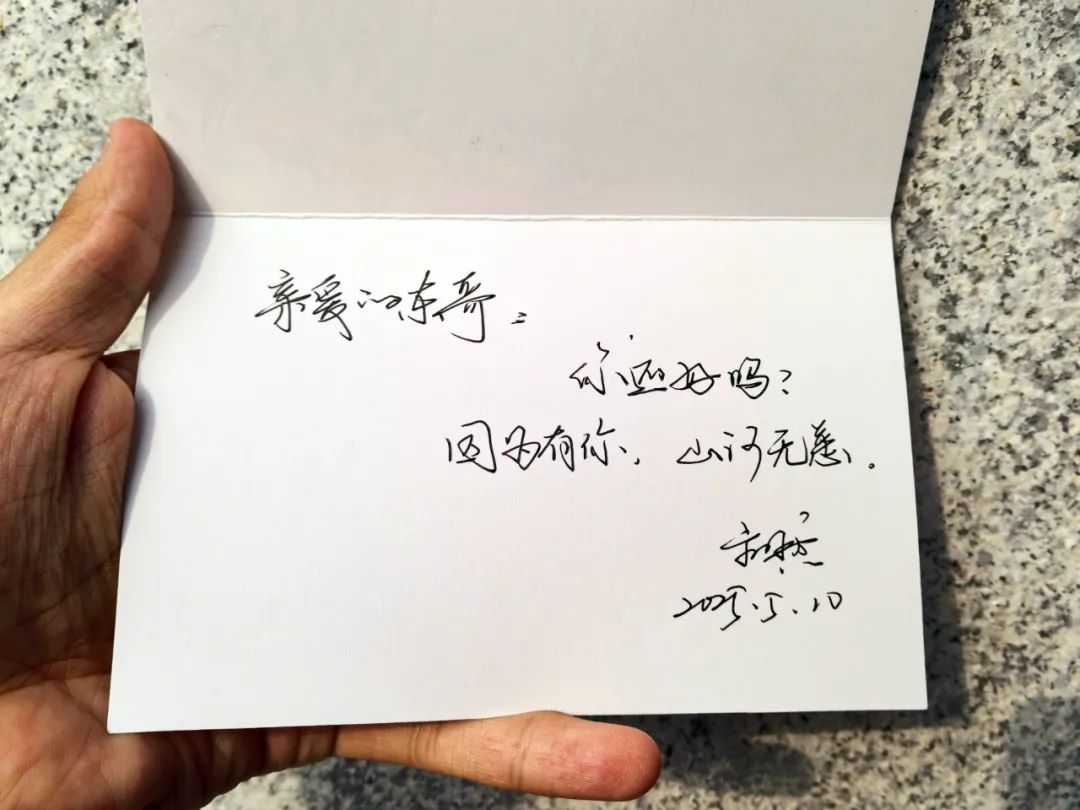 亲爱的东哥：
你还好吗？
因为有你，山河无恙。
2025.5.10